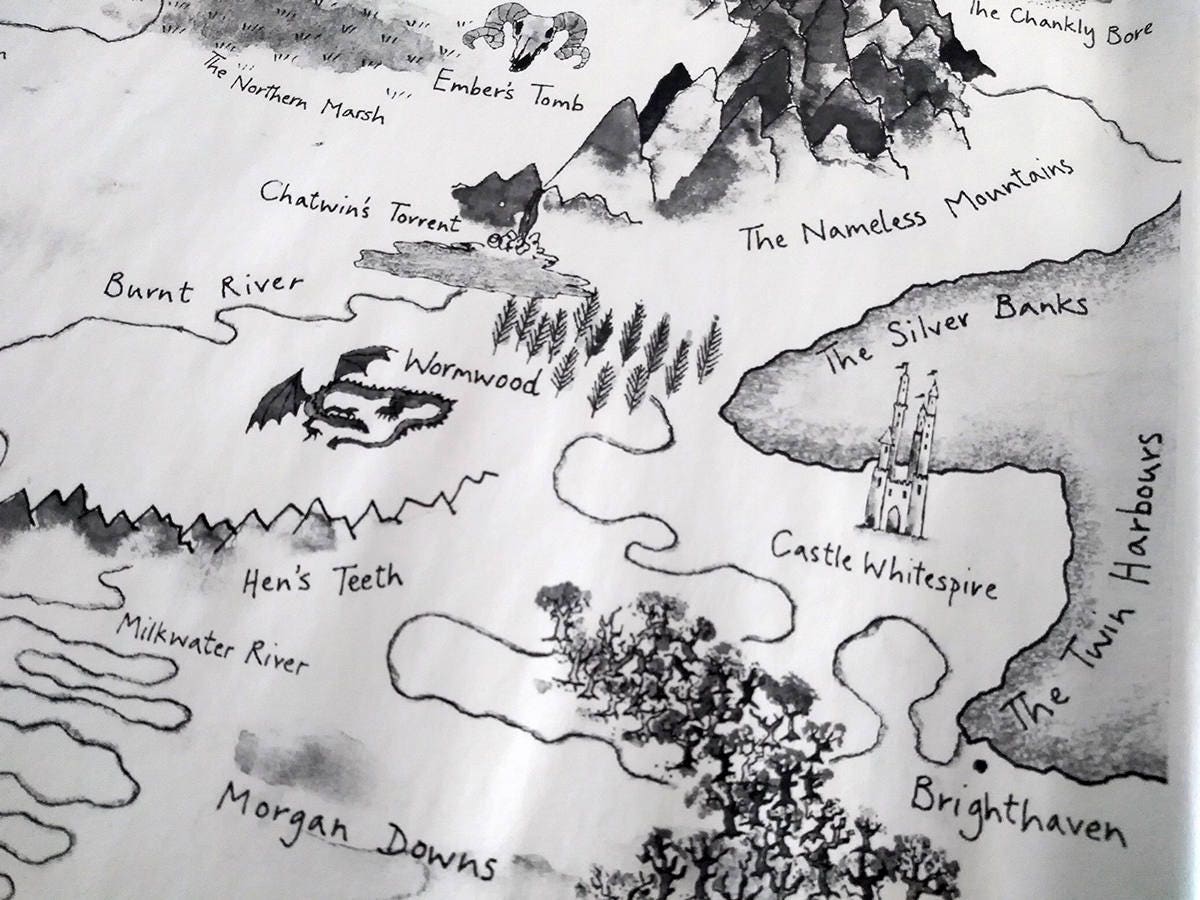 The Chankly Bore
The Northern Marsh
Ember's Tomb
Chatwin's Torrent
The Nameless Mountains
Burnt River
The Silver Banks
Wormwood
The Twin Harbours
Castle Whitespire
Hen's Teeth
Milkwater River
Morgan Downs
Brighthaven